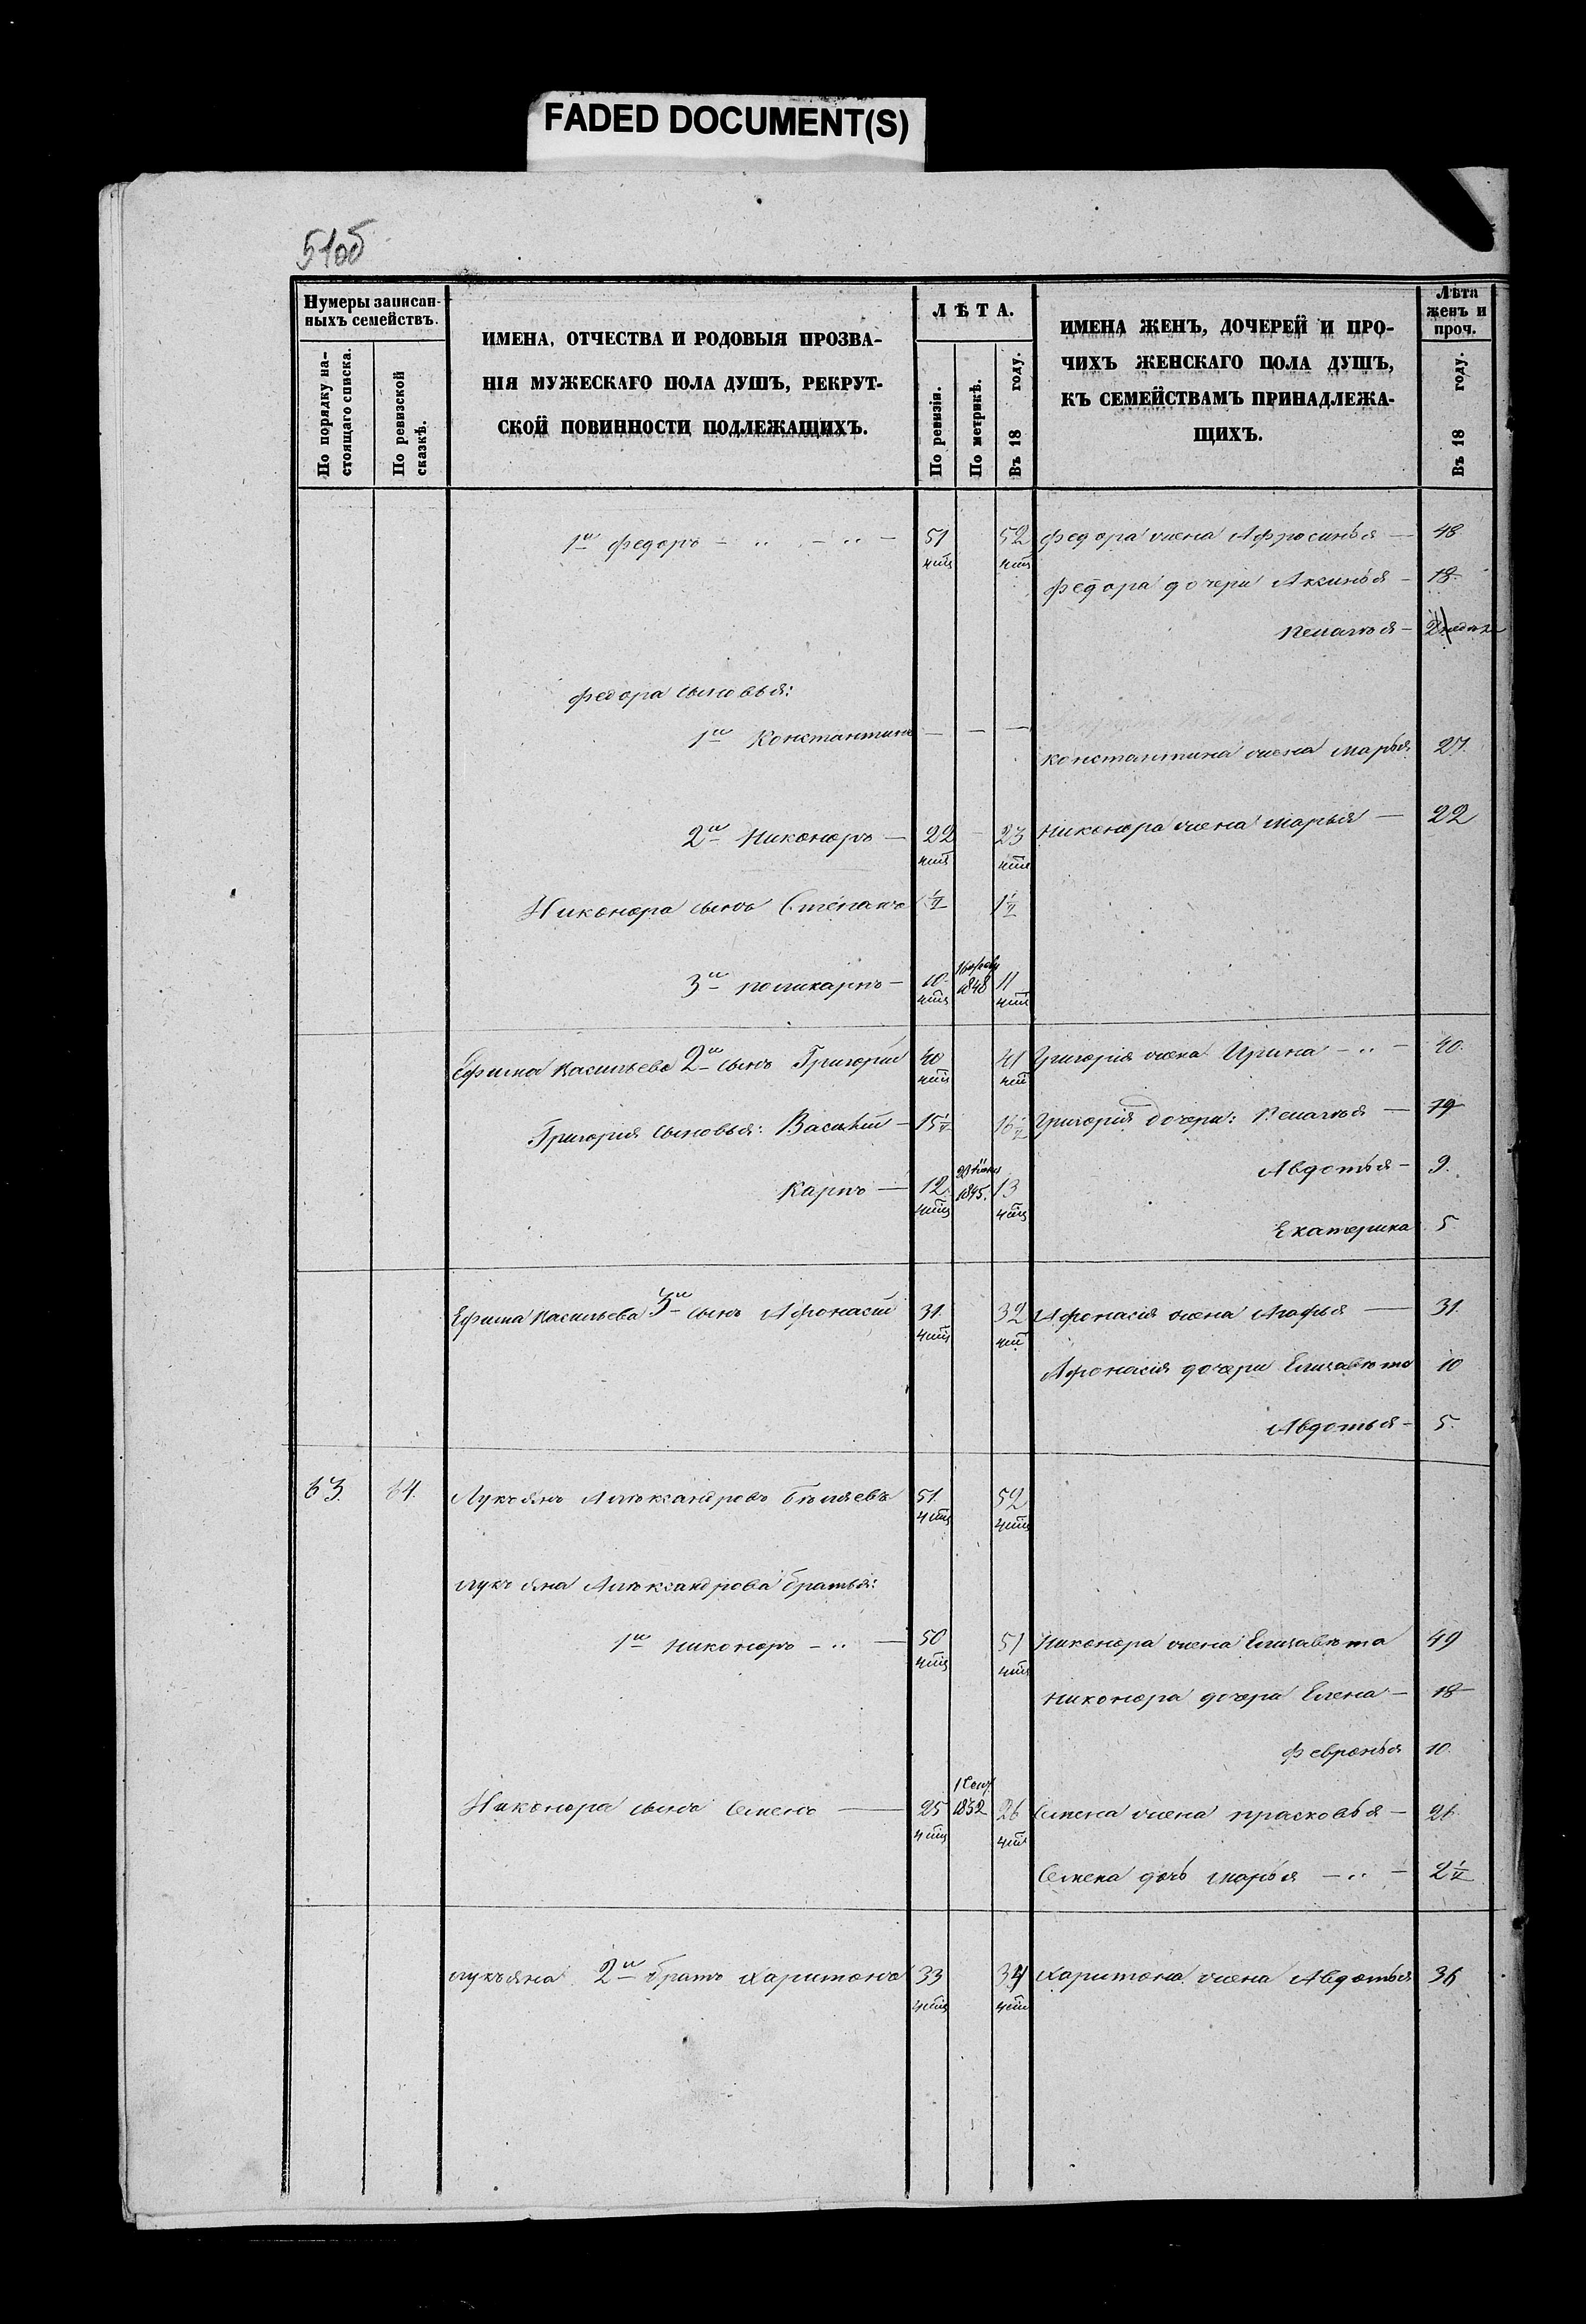 FADED DOCUMENT(S)
51об
Нумеры записан-
ныхъ семействъ.
По порядку на-
стоящаго списка.
По ревизской
сказкѣ.
ИМЕНА, ОТЧЕСТВА И РОДОВЫЯ ПРОЗВА-
НІЯ МУЖЕСКАГО ПОЛА ДУШЪ, РЕКРУТ-
СКОЙ ПОВИННОСТИ ПОДЛЕЖАЩИХЪ.
ЛѢТА.
По ревизіи.
По метрикѣ.
Въ 18 году.
ИМЕНА ЖЕНЪ, ДОЧЕРЕЙ И ПРО-
ЧИХЪ ЖЕНСКАГО ПОЛА ДУШЪ,
КЪ СЕМЕЙСТВАМЪ ПРИНАДЛЕЖА-
ЩИХЪ.
Лѣта
женъ и
проч.
Въ 18 году.
1й Федоръ — „ — „ — 51 52 Федора жена Афросинья — 48
Федора дочери Аксинья — 18
Пелагья — 2 недели
Федора сыновья:
1й Константинъ — — —
Константина жена Марья 27.
2й Никоноръ — 22 — 23 Никонора жена Марья — 22
Никонора сынъ Степанъ
3й Поликарпъ — 10 1848 11
Ефима Васильева 2й сынъ Григорій 40 41 Григорія жена Ирина — „ — 40.
Григорія сыновья: Василій — 15 16 Григорія дочери: Пелагья — 19
Авдотья — 9.
Карпъ — 12 1845. 13
Екатерина 5
Ефима Васильева 3й сынъ Афонасій 31 32 Афонасія жена Агафья — 31.
Афонасія дочери Елизавета 10
Авдотья — 5.
63. 64. Лукъянъ Александровъ Бѣляевъ 51 52
Лукъяна Александрова братья:
1й Никоноръ — „ — 50 51 Никонора жена Елизавета 49
Никонора дочери Елена — 18
Февронья 10.
Никонора сынъ Семенъ — 25 1 Сент. 1832 26 Семена жена Прасковья — 26
Семена дочь Марья — „ — 2
Лукъяна 2й братъ Харитонъ 33 34 Харитона жена Авдотья 36